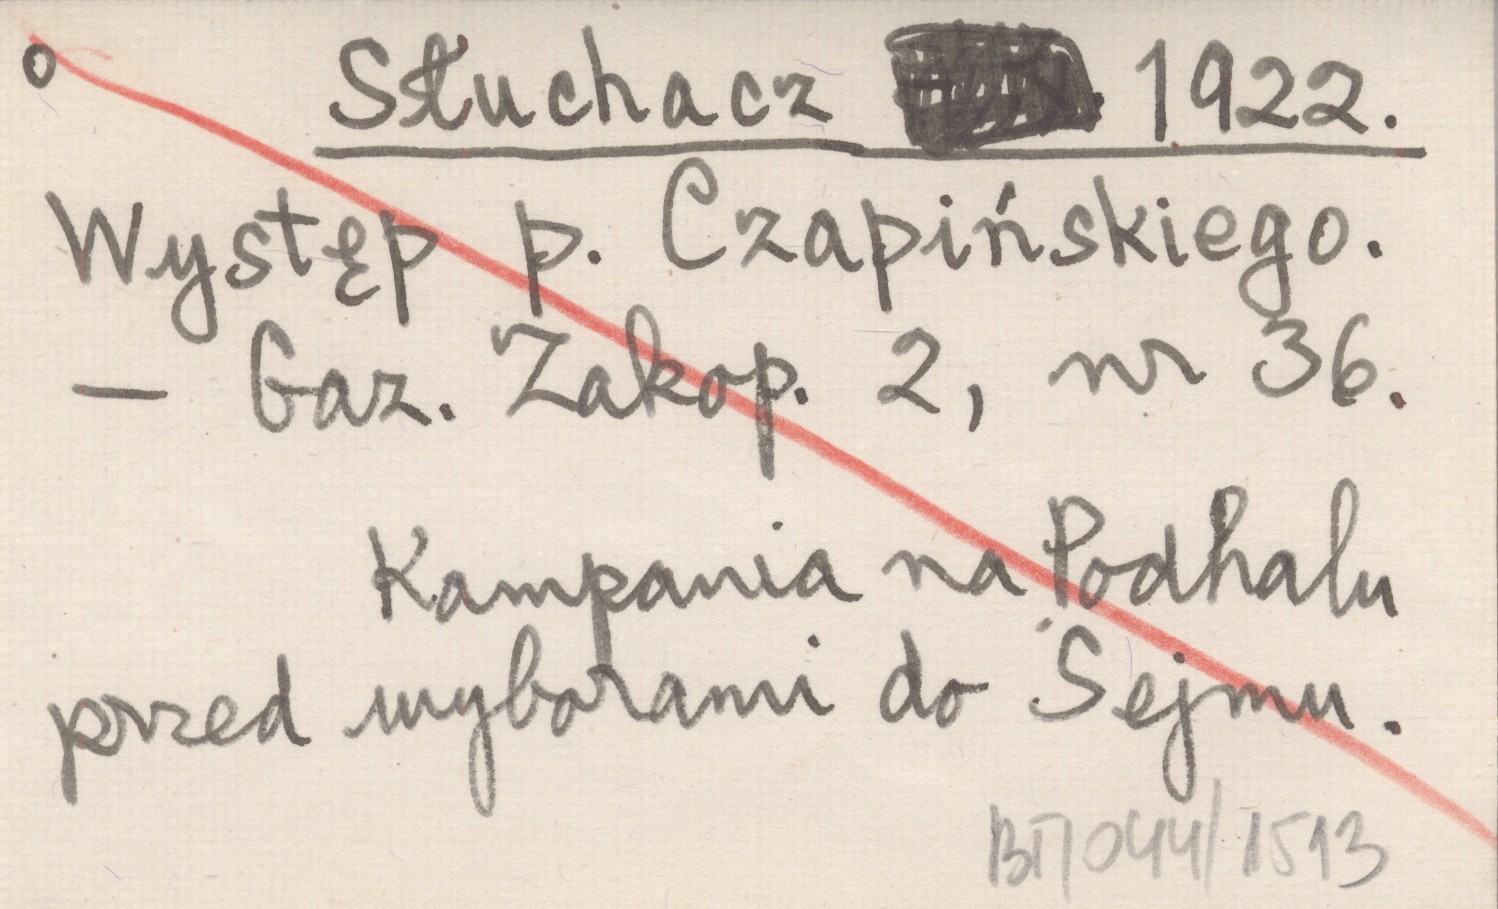 o Słuchacz 1922.
Występ p. Czapińskiego.
— Gaz. Zakop. 2, nr 36.
Kampania na Podhalu
przed wyborami do Sejmu.
BT/044/1513